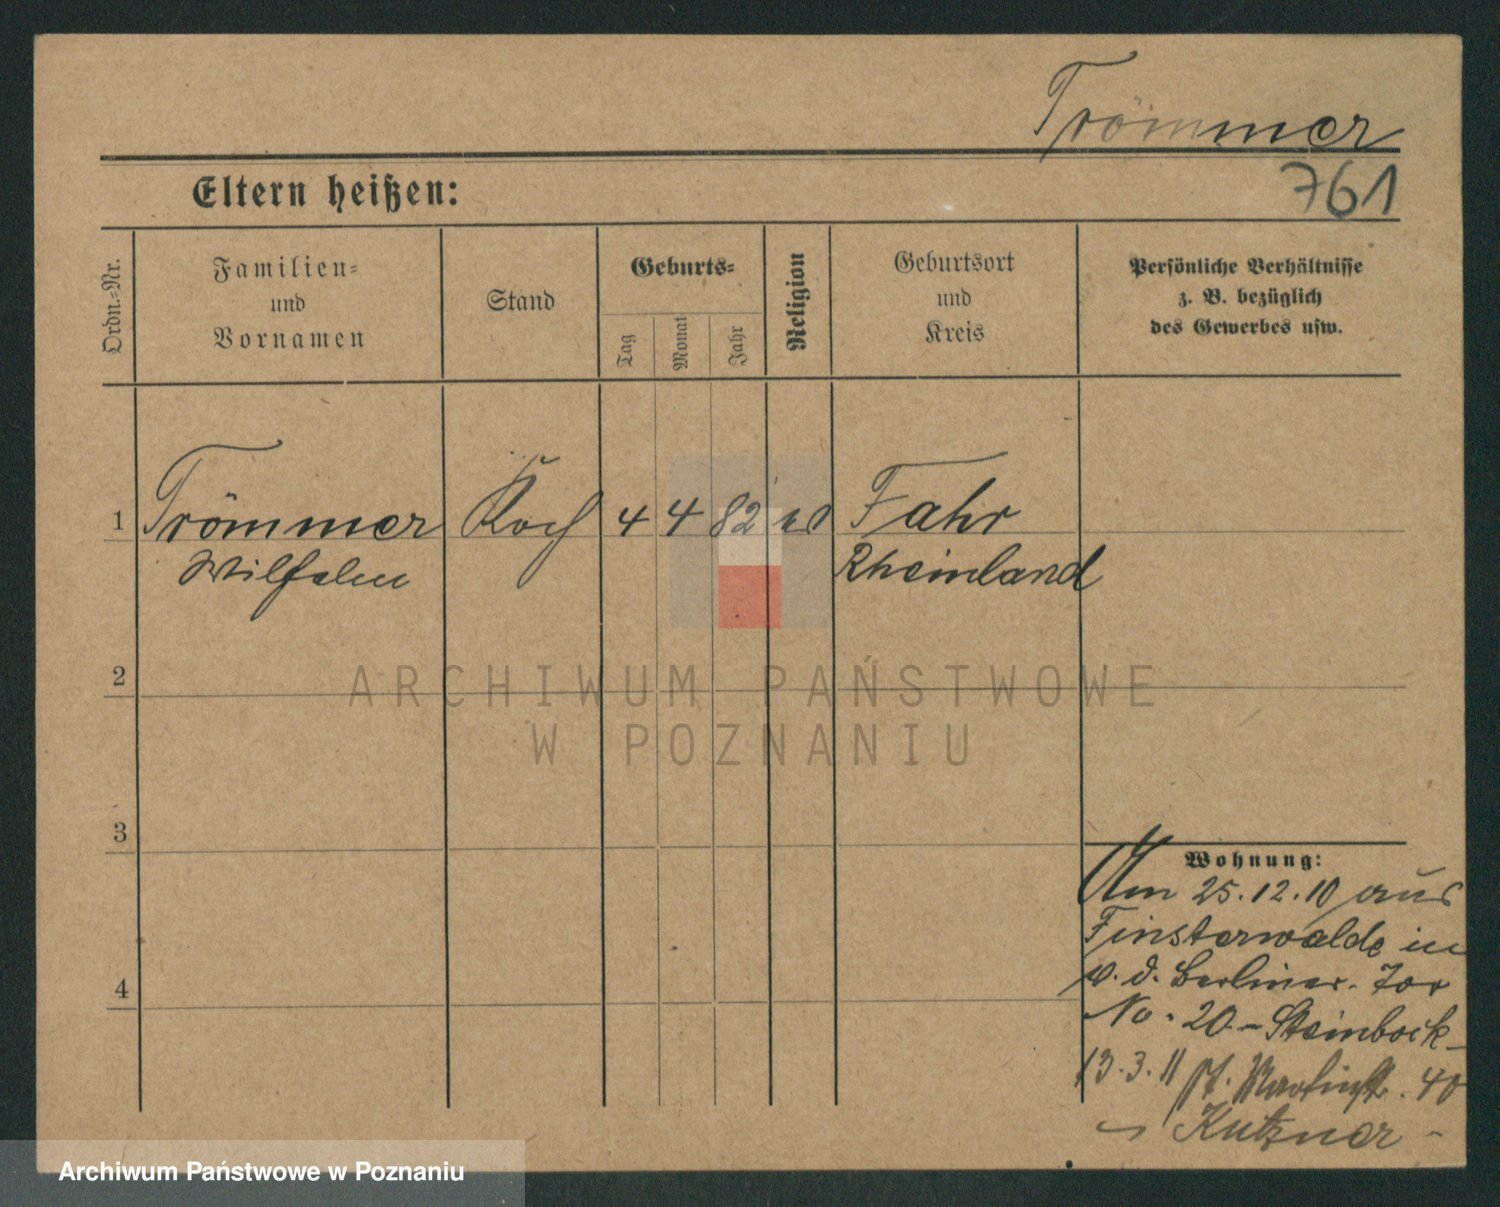 Trömmer
761
Eltern heißen:
Ordn.-Nr.
Familien-
und
Vornamen
Stand
Geburts-
Tag
Monat
Jahr
Religion
Geburtsort
und
Kreis
Persönliche Verhältnisse
z. B. bezüglich
des Gewerbes usw.
1 Trömmer Koch 4 4 82 Fahr
Wilhelm Rheinland
2
ARCHIWUM PAŃSTWOWE
W POZNANIU
3
Wohnung:
Am 25.12.10 aus
Finsterwalde in
v. d. Berliner-Tor
No. 20 - Steinbock -
13.3.11 St. Martinstr. 40
Kutzner -
4
Archiwum Państwowe w Poznaniu